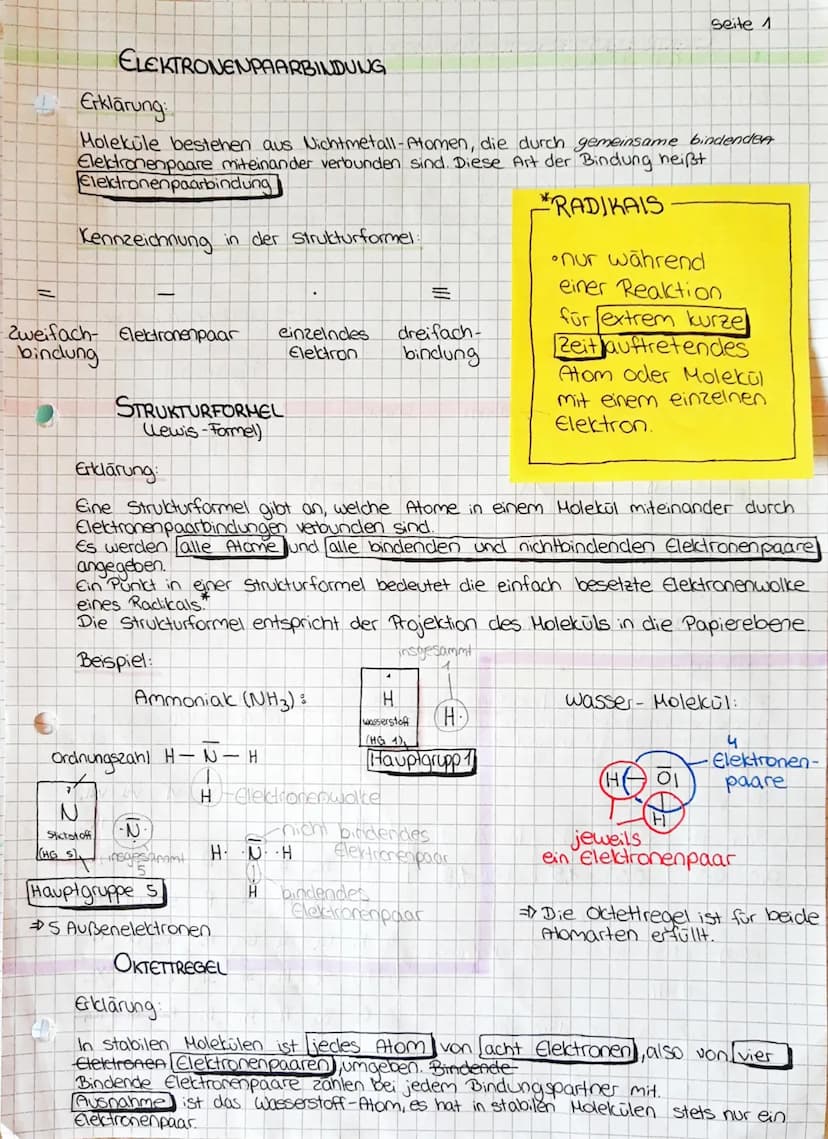 Seite 1
ELEKTRONENPAARBINDUNG
Erklärung:
Moleküle bestehen aus Nichtmetall-Atomen, die durch gemeinsame bindenden
Elektronenpaare miteinander verbunden sind. Diese Art der Bindung heißt
Elektronenpaarbindung
*RADIKALS
•nur während
einer Reaktion
für extrem kurze
Zeit auftretendes
Atom oder Molekül
mit einem einzelnen
Elektron.
Kennzeichnung in der Strukturformel:
= — · ≡
Zweifach- Elektronenpaar einzelndes dreifach-
bindung Elektron bindung
STRUKTURFORMEL
(Lewis-Formel)
Erklärung:
Eine Strukturformel gibt an, welche Atome in einem Molekül miteinander durch
Elektronenpaarbindungen verbunden sind.
Es werden alle Atome und alle bindenden und nichtbindenden Elektronenpaare
angegeben.
Ein Punkt in einer Strukturformel bedeutet die einfach besetzte Elektronenwolke
eines Radikals.*
Die Strukturformel entspricht der Projektion des Moleküls in die Papierebene.
Beispiel:
Ammoniak (NH₃):
insgesammt
1
H
Wasserstoff
(HG 1)
H·
Hauptgrupp 1
Ordnungszahl H — N — H
H
Elektronenwolke
7
N
Stickstoff
(HG 5)
·N·
insgesammt
5
Hauptgruppe 5
⇒ 5 Außenelektronen
H· ·N· ·H
H
nicht bindendes
Elektronenpaar
bindendes
Elektronenpaar
Wasser-Molekül:
4
Elektronen-
paare
H — O|
H
jeweils
ein Elektronenpaar
⇒ Die Oktettregel ist für beide
Atomarten erfüllt.
OKTETTREGEL
Erklärung:
In stabilen Molekülen ist jedes Atom von acht Elektronen, also von vier
Elektronen Elektronenpaaren, umgeben. Bindende
Bindende Elektronenpaare zählen bei jedem Bindungspartner mit.
Ausnahme ist das Wasserstoff-Atom, es hat in stabilen Molekülen stets nur ein
Elektronenpaar.